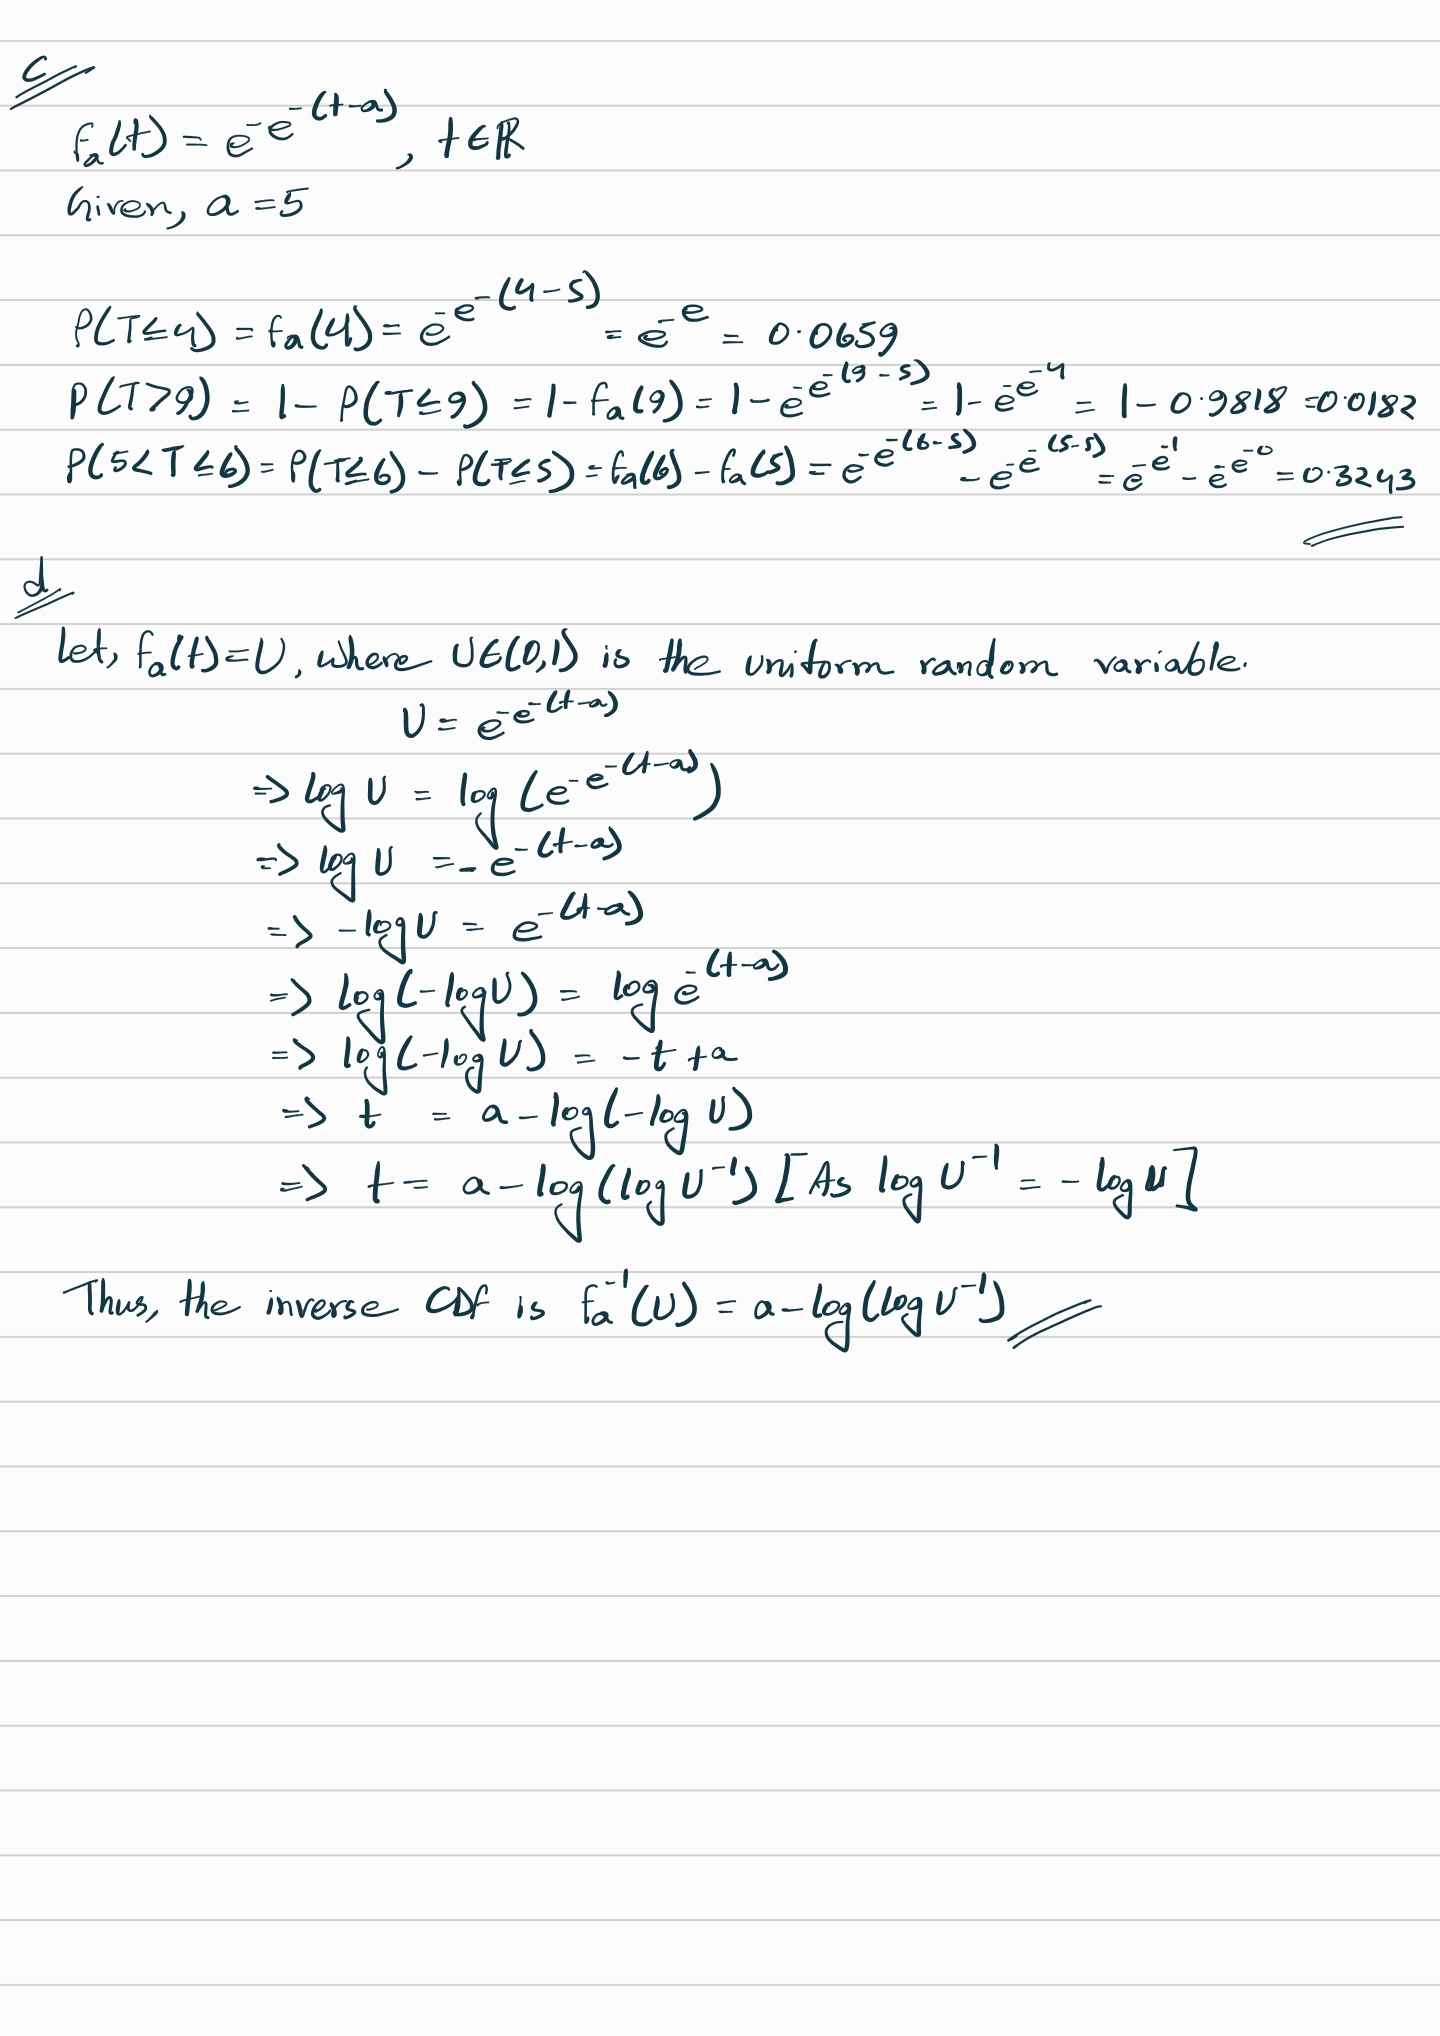 c
fₐ(t) = e^-e^-(t-a), t∈ℝ
Given, a = 5
P(T≤4) = fₐ(4) = e^-e^-(4-5) = e^-e = 0.0659
P(T>9) = 1 - P(T≤9) = 1 - fₐ(9) = 1 - e^-e^-(9-5) = 1 - e^-e^-4 = 1 - 0.9818 = 0.0182
P(5<T≤6) = P(T≤6) - P(T≤5) = fₐ(6) - fₐ(5) = e^-e^-(6-5) - e^-e^-(5-5) = e^-e^-1 - e^-e^-0 = 0.3243
d
Let, fₐ(t) = U, where U∈(0,1) is the uniform random variable.
U = e^-e^-(t-a)
=> log U = log (e^-e^-(t-a))
=> log U = - e^-(t-a)
=> -log U = e^-(t-a)
=> log(-log U) = log e^-(t-a)
=> log(-log U) = -t + a
=> t = a - log(-log U)
=> t = a - log(log U^-1) [As log U^-1 = - log U]
Thus, the inverse CDF is fₐ^-1(U) = a - log(log U^-1)